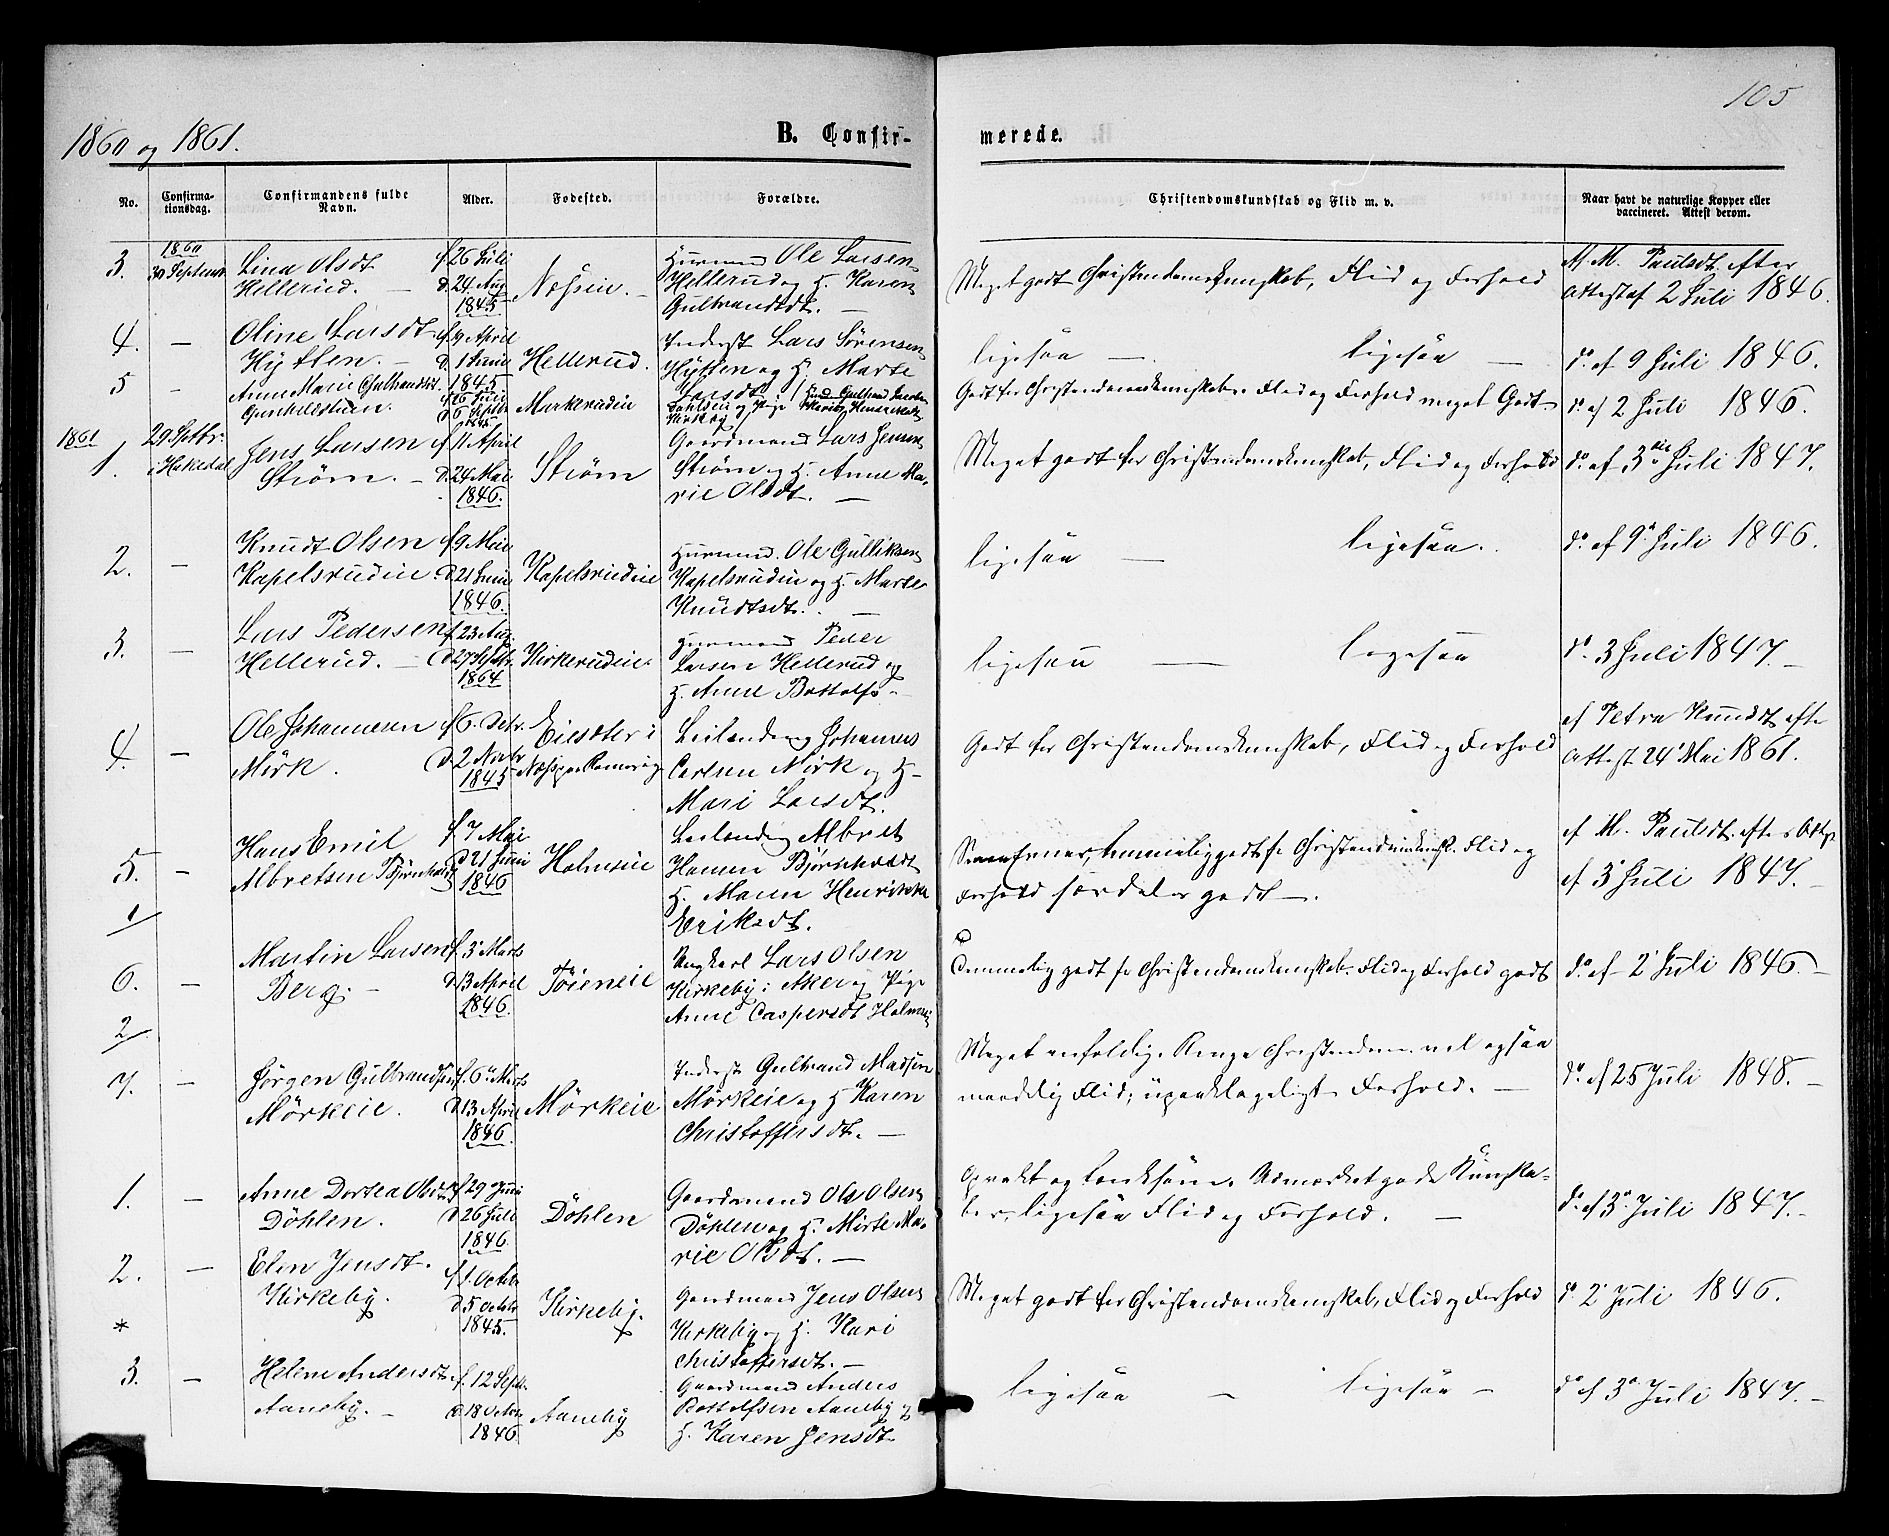 105
1860 og 1861.
B. Confir-
merede.
No.
Confirma-
tionsdag.
Confirmandens fulde
Navn.
Alder.
Fodested.
Forældre.
Christendomskundskab og Flid m. v.
Naar havt de naturlige Kopper eller
vaccineret. Attest derom.
3.
1860
30 Septemb
Lina Olsdt
Hellerud. —
f 26 Juli
d. 24 Aug
1845
Næsseie. —
Huusmd Ole Larsen
Hellerud og H. Karen
Gulbrandsdt. —
Meget godt Christendomskunskab, Flid og Forhold
Af M. Paulsdt. efter
Attest af 2 Juli 1846.
4.
—
Oline Larsdt
Hytten. —
f 9 April
d. 1 Juni
1845
Hellerud.
Inderst Lars Sørensen
Hytten og H. Marte
Larsdt
ligesaa — ligesaa —
do af 9 Juli 1846.
5
—
Anne Marie Gulbrandsdt.
Gunhildstuen.
f 26 Juli
d 6 Septbr
1845
Markerudeie
Godt for Christendomskunskab. Flid og Forhold meget Godt
do. af 2 Juli 1846.
1861
1.
29 Septbr.
i Hakedal
Jens Larsen
Strøm. —
f 11 April
d. 24 Mai
1846.
Strøm
Gaardmand Lars Jensen
Strøm og H. Anne Ma-
rie Olsdt. —
Meget godt for Christendomskunskab, Flid og Forhold
do. af 3die Juli 1847.
2.
—
Knudt Olsen
Kapelsrudeie.
f 9 Mai
d 21 Juni
1846.
Kapelsrudeie
Huusmd. Ole Gulliksen
Kapelsrudeie og H. Marte
Knudtsdt. —
ligesaa — ligesaa.
do. af 9 Juli 1846.
3.
—
Lars Pedersen
Hellerud. —
f 23 Aug.
d 27 Septbr.
1864
Kirkerudeie.
Huusmand Peder
Larsen Hellerud og
H. Anne Bottolfs-
ligesaa — ligesaa
do. 3 Juli 1847. —
4.
—
Ole Johannesen
Mørk.
f 6. Octr.
d 2 Novbr
1845
Eiesæter i
Næs paa Romerig
Leilænding Johannes
Carlsen Mørk og H.
Mari Larsdt.
Godt for Christendomskunskab, Flid og Forhold
af Petra Knudtsdt efter
Attest 24 Mai 1861.
5.
—
Hans Emil
Albretsen Bjørnholdt
f. 7 Mai
d 21 Juni
1846
Holmeie
Leilænding Albret
Hansen Bjørnholdt
H. Maren Henrikke
Eriksdt.
temmelig godt for Christendomskunsk. Flid og
Forhold særdeles godt —.
af M. Paulsdt. efter Attest
af 3 Juli 1847. —
1/
6.
—
Martin Larsen
Berg. —
f. 3 Marts
d. 13 April
1846.
Tøieneie
Ungkarl Lars Olsen
Kirkeby i Aker og Pige
Anne Caspersdt Holmeie
Temmelig godt for Christendomskunskab. Flid og Forhold godt
do. af 2 Juli 1846. —
2/
7.
—
Jørgen Gulbrandsen
Mørkeie.
f. 6 Marts
d. 13 April
1846.
Mørkeie
Inderst Gulbrand Madsen
Mørkeie og H Karen
Christoffersdt. —
Meget enfoldig. Ringe Christendom. vel ogsaa
maadelig Flid; upaaklageligt Forhold. —
do. af 25 Juli 1848. —
1.
—
Anne Dortea Olsdt
Döhlen.
f 29 Juni
d 26 Juli
1846
Döhlen
Gaardmand Ole Olsen
Döhlen og H. Mirte Ma-
rie Olsdt. —
Opvakt og tænksom. Udmærket gode Kunska-
ber, ligesaa Flid og Forhold. —
do. af 3 Juli 1847. —
2.
—
Elen Jensdt.
Kirkeby.
f 1. Octbr
d 5 Octbr
1845.
Kirkeby.
Gaardmand Jens Olsen
Kirkeby og H. Kari
Christoffersdt. —
Meget godt for Christendomskunskab, Flid og Forhold
do 2 Juli 1846.
*
3.
—
Helene Andersdt.
Aaneby. —
f. 12 Septr.
d. 18 Octbr
1846
Aaneby
Gaardmand Anders
Bottolfsen Aaneby og
H. Karen Jensdt.
ligesaa — ligesaa —
do af 3 Juli 1847. —